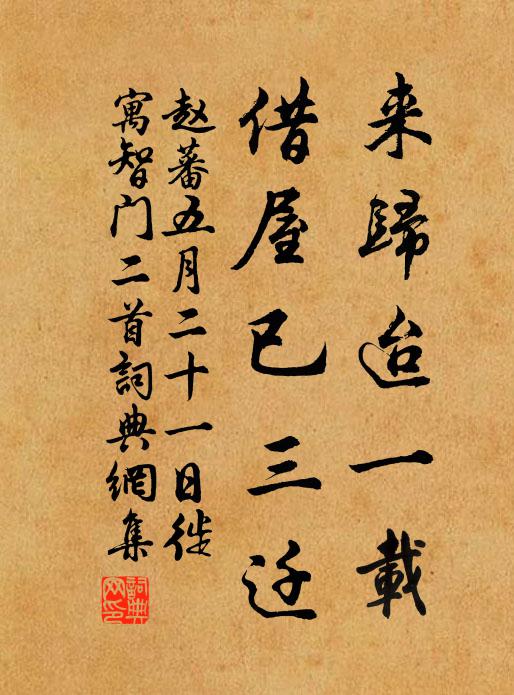 来歸迨一載
借屋已三迁
赵蕃五月二十一日徙
寓智门二首詞典網集
詞典網印